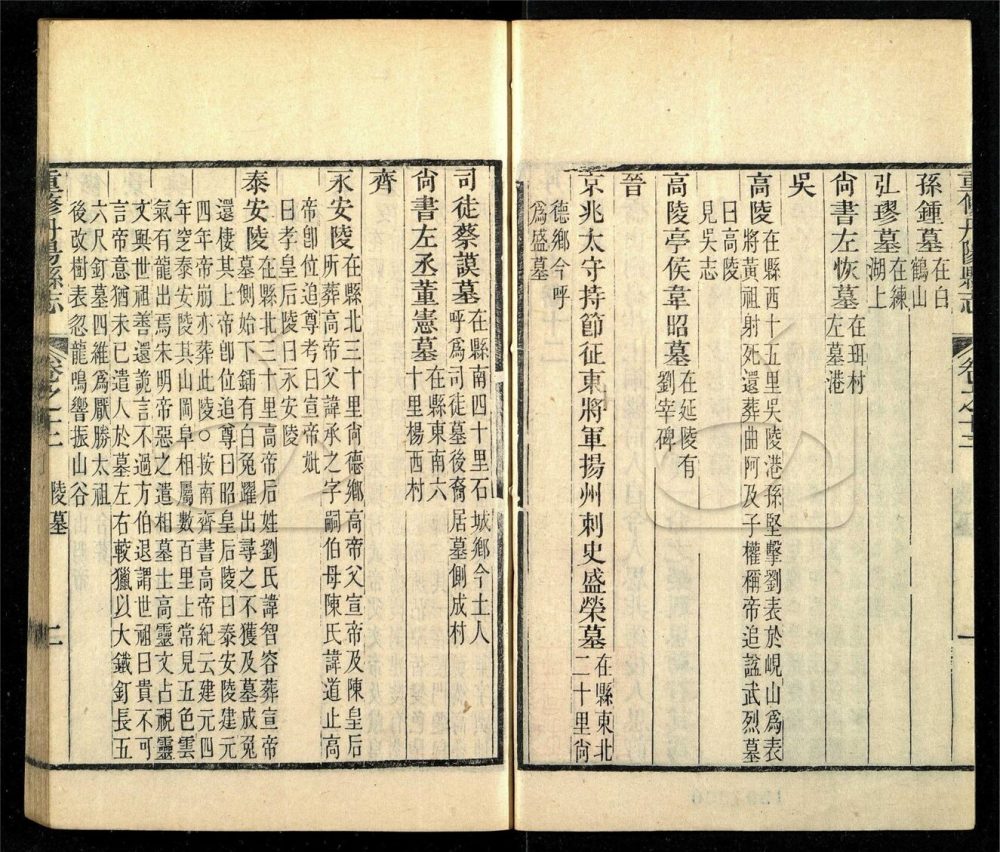 重修丹陽縣志 卷之十二 一
孫鍾墓在白鶴山
弘璆墓在練湖上
尚書左恢墓在珥村左墓港
吳
高陵在縣西十五里吳陵港孫堅擊劉表於峴山爲表
將黃祖射死還葬曲阿及子權稱帝追諡武烈墓
曰高陵
見吳志
高陵亭侯韋昭墓在延陵有劉宰碑
晉
京兆太守持節征東將軍揚州刺史盛榮墓在縣東北二十里尚
德鄉今呼
爲盛墓
司徒蔡謨墓在縣南四十里石城鄉今土人
呼爲司徒墓後裔居墓側成村
尚書左丞董憲墓在縣東南六十里楊西村
齊
永安陵在縣北三十里尚德鄉高帝父宣帝及陳皇后
所葬高帝父諱承之字嗣伯母陳氏諱道止高
帝卽位追尊考曰宣帝妣
曰孝皇后陵曰永安陵
泰安陵在縣北三十里高帝后姓劉氏諱智容葬宣帝
墓側始下鍤有白兔躍出尋之不獲及墓成兔
還棲其上帝卽位追尊曰昭皇后陵曰泰安陵建元
四年帝崩亦葬此陵○按南齊書高帝紀云建元四
年窆泰安陵其山岡阜相屬數百里上常見五色雲
氣有龍出焉宋明帝惡之遣相墓士高靈文占視靈
文與世祖善還詭言不過方伯退謂世祖曰貴不可
言帝意猶未已遣人於墓左右較獵以大鐵釘長五
六尺釘墓四維爲厭勝太祖
後改樹表忽龍鳴響振山谷
重修丹陽縣志 卷之十二 陵墓 二